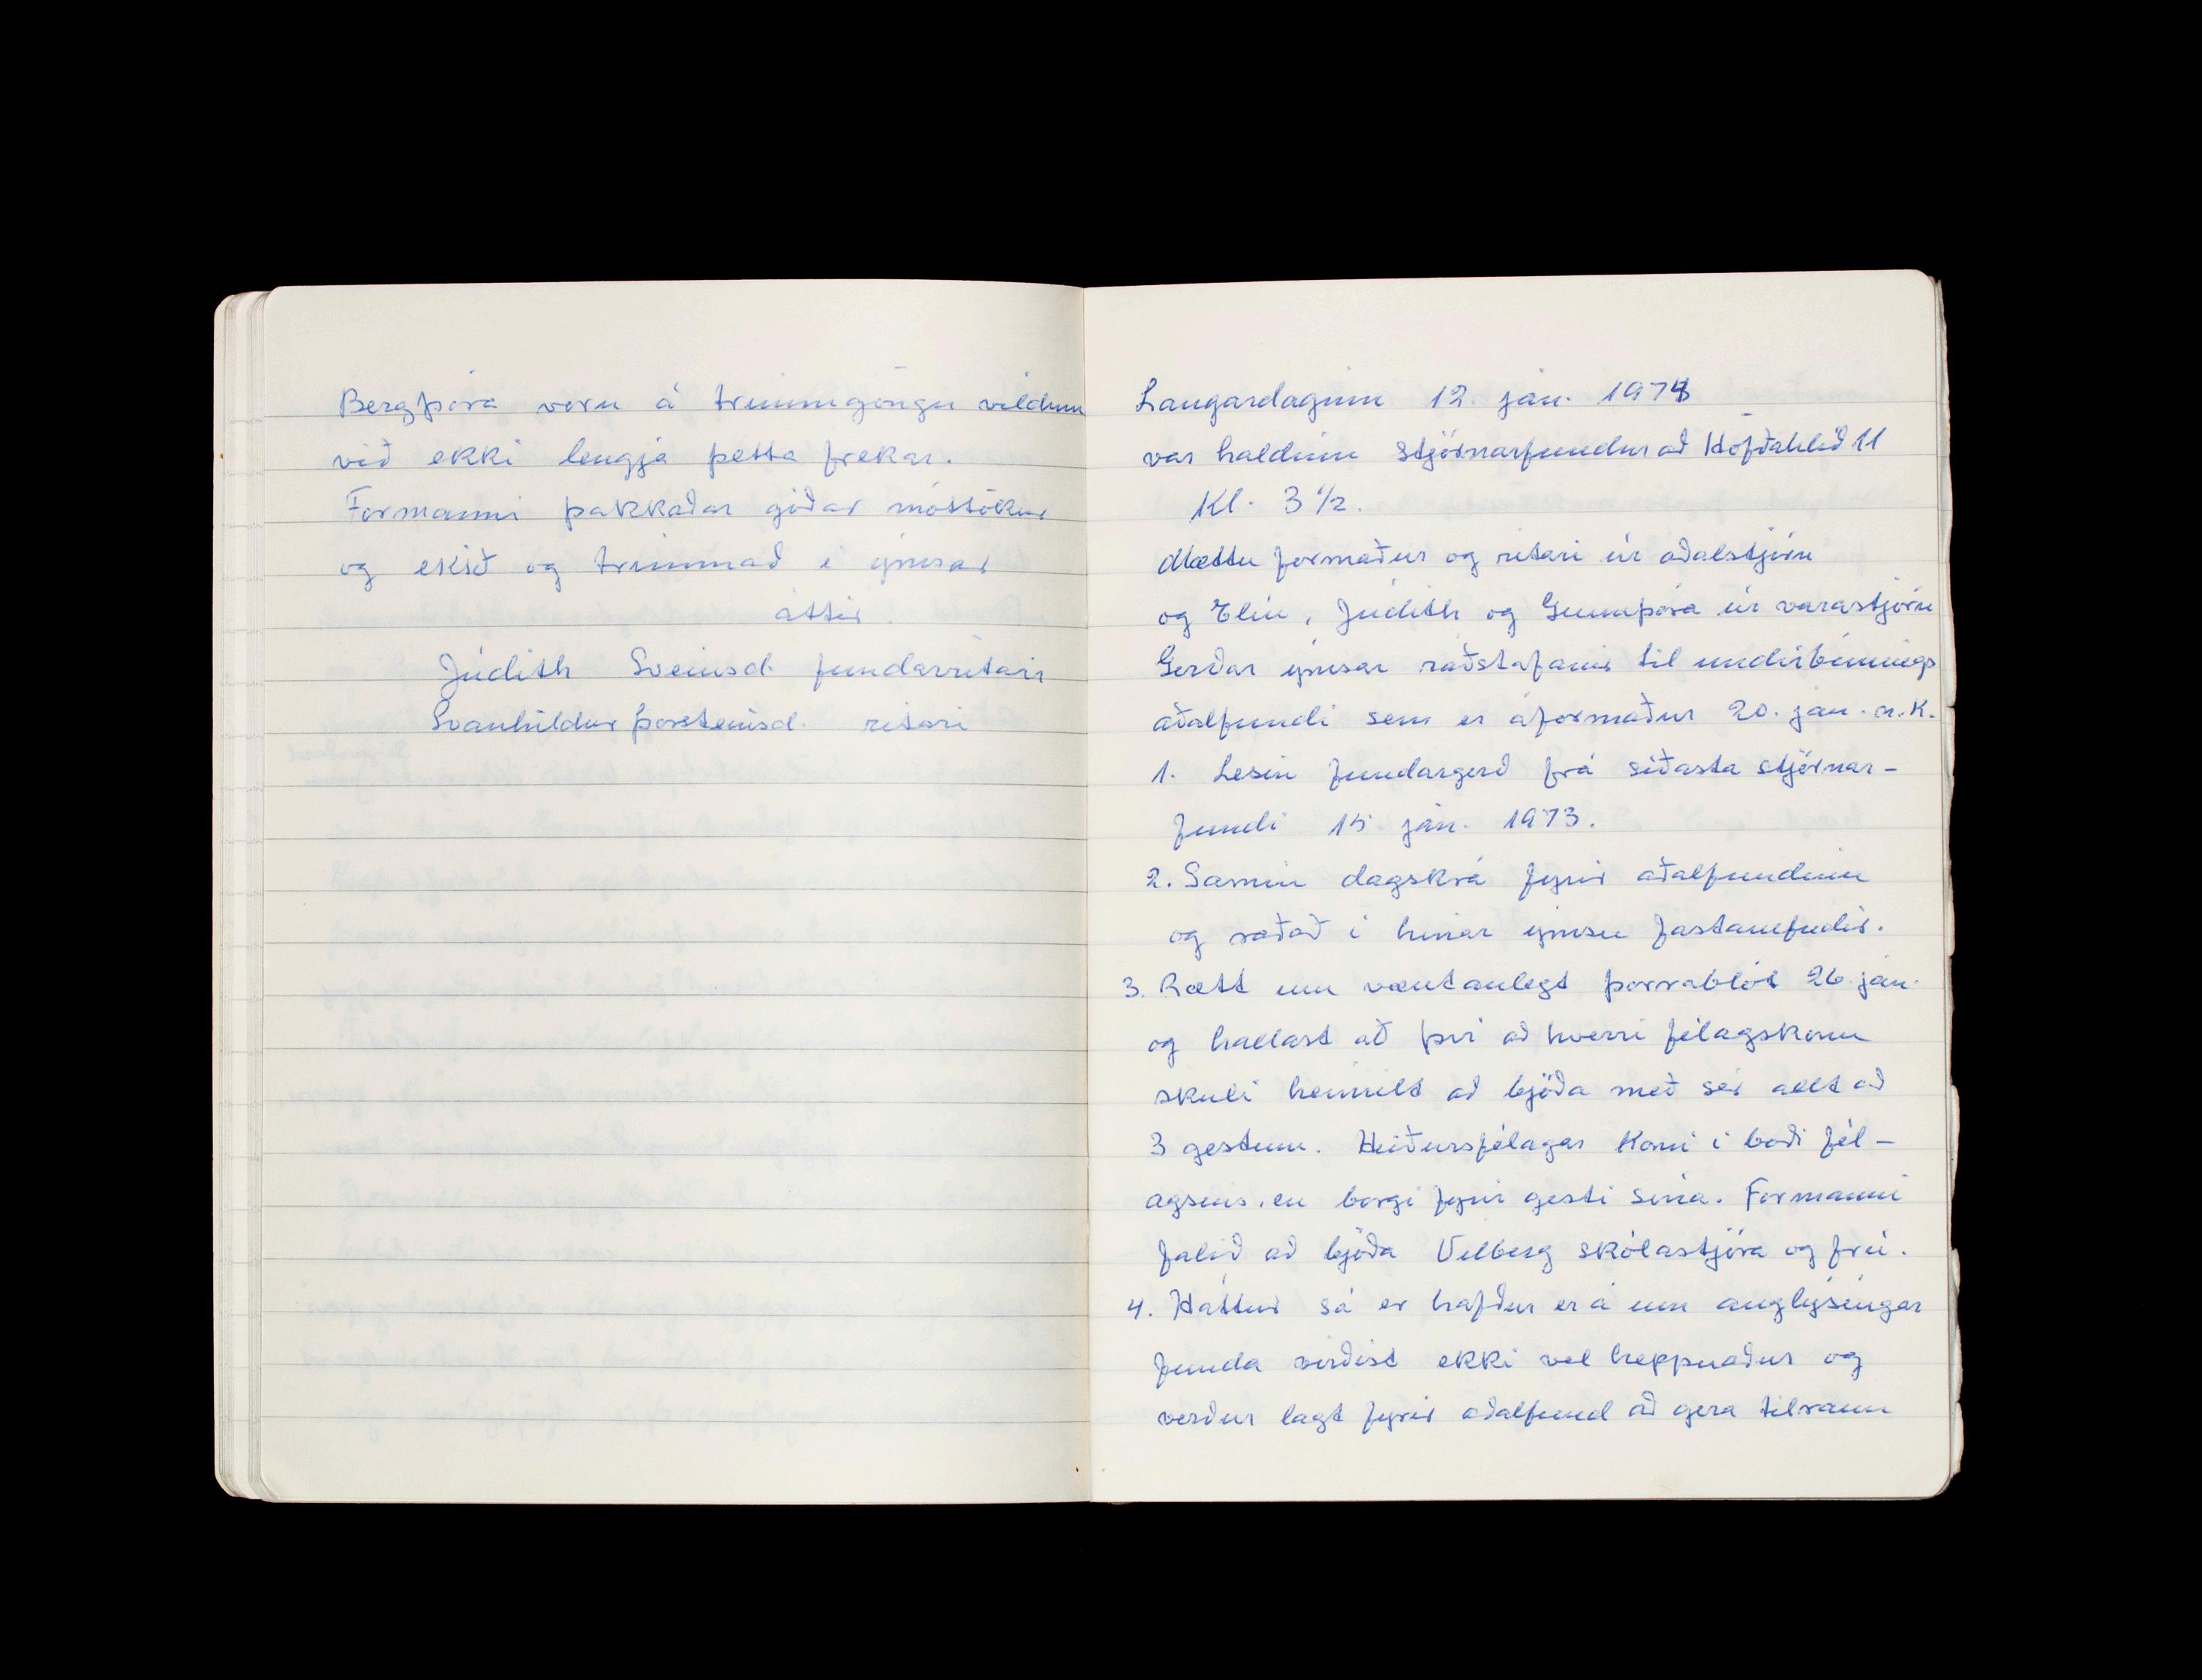 Bergþóra voru á trimmgöngu vildum
við ekki lengja þetta frekar.
Formanni þakkaðar góðar móttökur
og ekið og trimmað í ýmsar
áttir.
Júdith Sveinsd. fundarritari
Svanhildur Þorsteinsd. ritari
Laugardaginn 12. jan. 1974
var haldinn stjórnarfundur að Höfðahlíð 11
Kl. 3 1/2.
Mættu formaður og ritari úr aðalstjórn
og Elín, Júdith og Gunnþóra úr varastjórn
Gerðar ýmsar ráðstafanir til undirbúnings
aðalfundi sem er áformaður 20. jan. n.k.
1. Lesin fundargerð frá síðasta stjórnar-
fundi 15. jan. 1973.
2. Samin dagskrá fyrir aðalfundinn
og raðað í hinar ýmsu fastanefndir.
3. Rætt um væntanlegt þorrablót 26. jan.
og hallast að því að hverri félagskonu
skuli heimilt að bjóða með sér allt að
3 gestum. Heiðursfélagar komi í boði fél-
agsins, en borgi fyrir gesti sína. Formanni
falið að bjóða Vilberg skólastjóra og frú.
4. Háttur sá er hafður er á um auglýsingar
funda virðist ekki vel heppnaður og
verður lagt fyrir aðalfund að gera tilraun